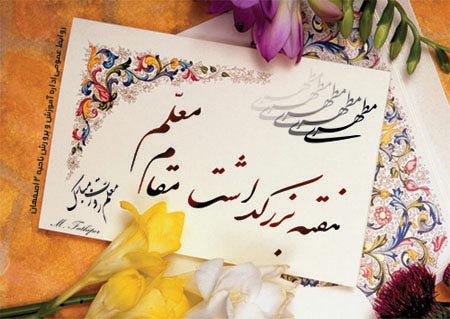 مطهری
مطهری
مطهری
مطهری
مطهری
معلّم
مقام
هفته بزرگداشت
معلم روزت مبارک
روابط عمومی اداره آموزش و پرورش ناحیه ۲ اصفهان